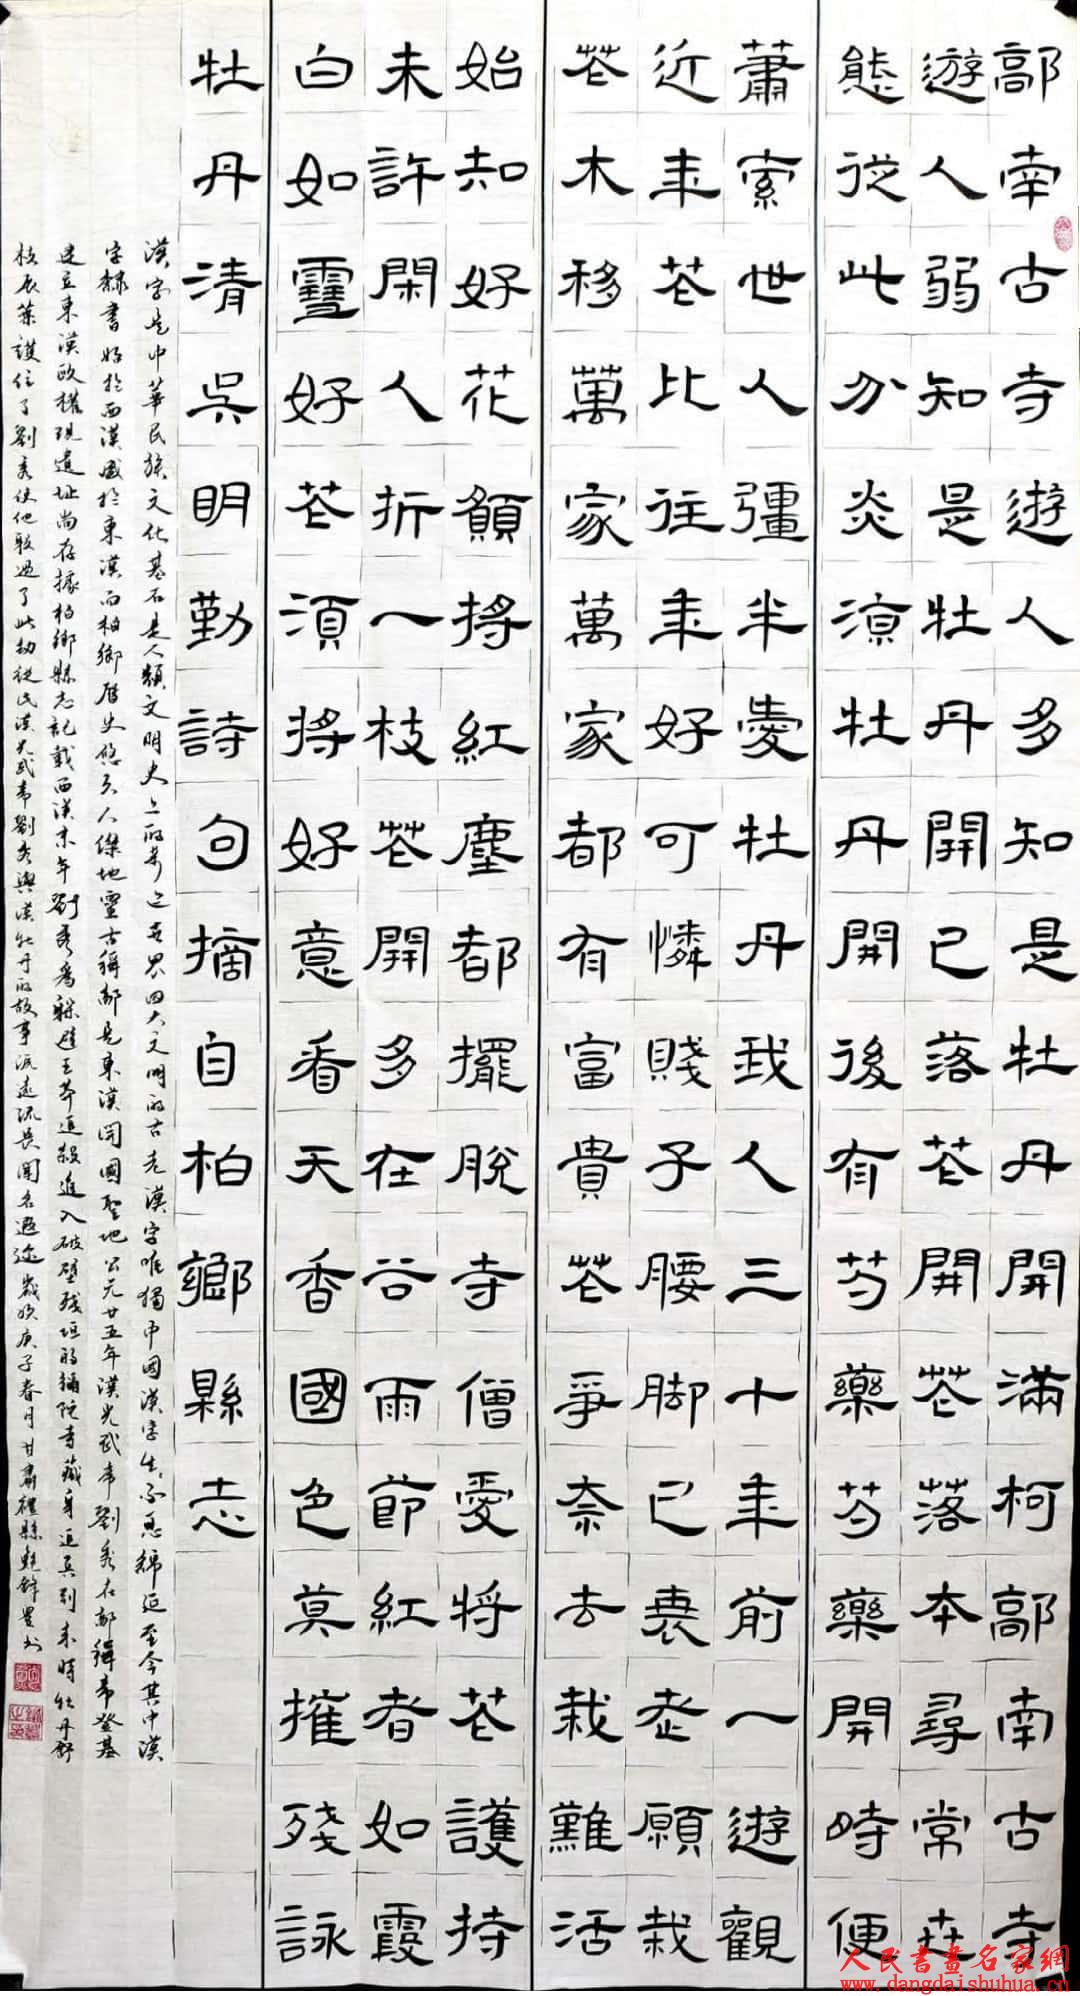 鄗南古寺遊人多知是牡丹開滿柯鄗南古寺
遊人弱知是牡丹開已落芲開芲落本尋常
態從此分炎凉牡丹開後有芍藥芍藥開時便
蕭索世人彊半愛牡丹我人三十年前一遊觀
近年芲比往年好可憐賤子腰脚已衰老願栽
芲木移萬家萬家都有富貴芲爭奈去栽難活
始知好花顏將紅塵都擺脫寺僧愛將芲護持
未許閑人折一枝芲開多在谷雨節紅者如霞
白如雪好芲須將好意看天香國色莫摧殘詠
牡丹清吳明勤詩句摘自柏鄉縣志
漢字是中華民族文化基石是人類文明史上的奇迹世界四大文明的古老漢字唯獨中國漢字生生不息綿延至今其中漢
字隸書始於西漢盛於東漢而柏鄉歷史悠久人傑地靈古稱鄗是東漢開國聖地公元廿五年漢光武帝劉秀在鄗稱帝登基
建立東漢政權現遺址尚存據柏鄉縣志記載西漢末年劉秀爲躲避王莽追殺進入破壁殘垣的彌陀寺藏身追兵到來時牡丹舒
枝展葉護住了劉秀使他躲過了此劫從此漢光武帝劉秀與漢牡丹的故事源遠流長聞名遐邇歲次庚子春月甘肅禮縣
人民書畫名家網
www.dangdaishuhua.cn